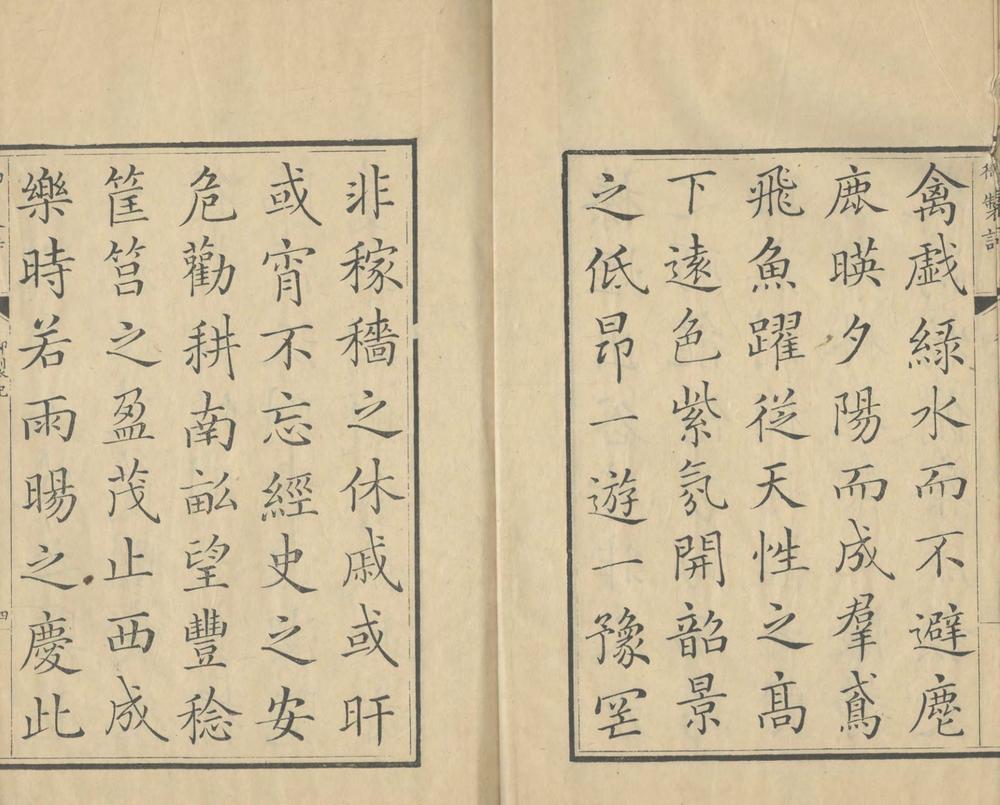 御製記
禽戲綠水而不避麀
鹿暎夕陽而成羣鳶
飛魚躍從天性之髙
下遠色紫氛開韶景
之低昂一遊一豫罔
非稼穡之休戚或旰
或宵不忘經史之安
危勸耕南畝望豐稔
筐筥之盈茂止西成
樂時若雨暘之慶此
御製記
四